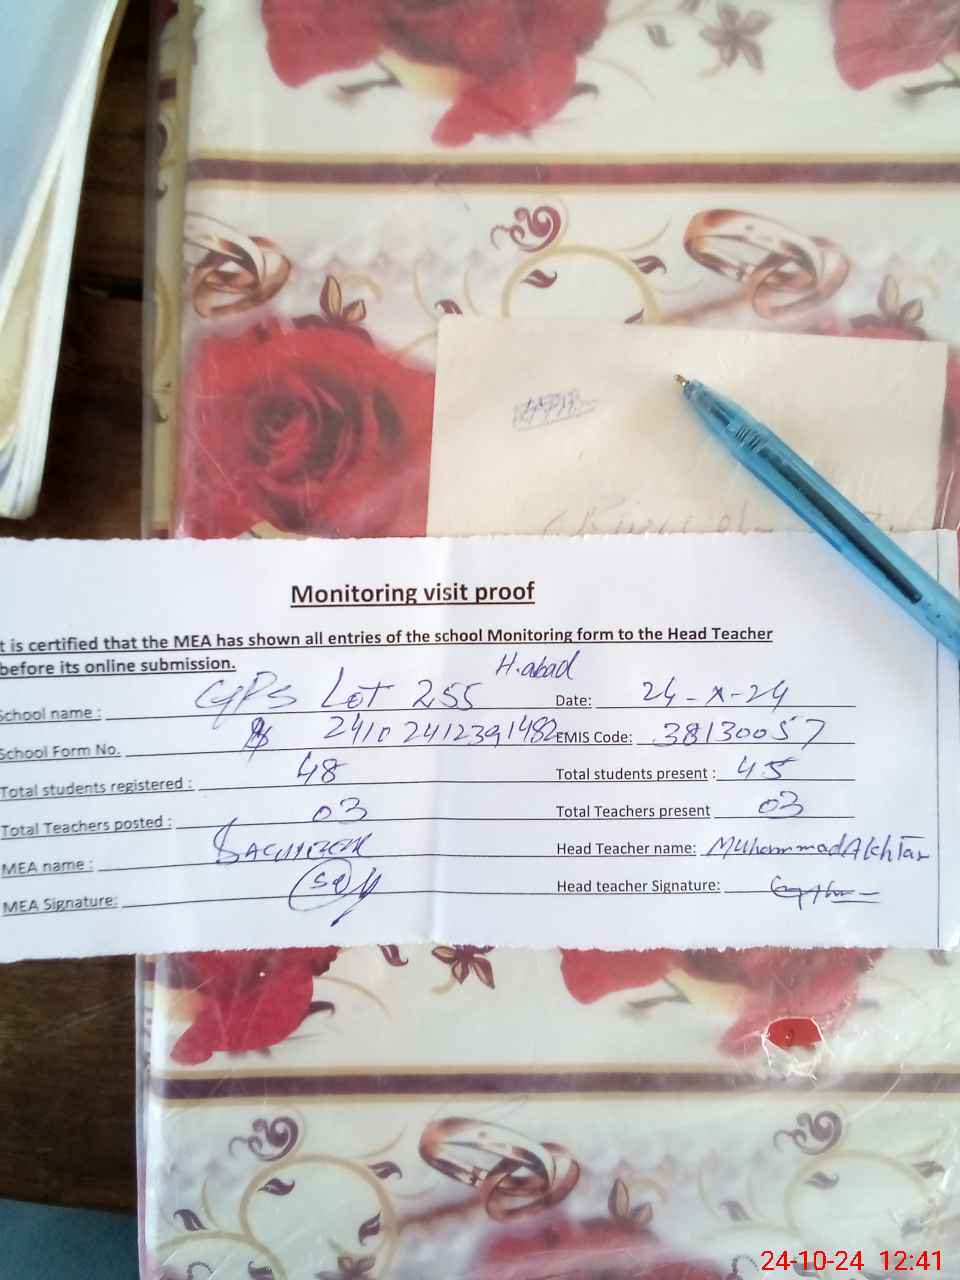 Monitoring visit proof
t is certified that the MEA has shown all entries of the school Monitoring form to the Head Teacher
before its online submission.
H.abad
School name : GPS Lot 255 Date: 24-X-24
School Form No. 2410 2412391482 EMIS Code: 38130057
Total students registered : 48 Total students present : 45
Total Teachers posted : 03 Total Teachers present 03
MEA name : Head Teacher name: Muhammad Akhtar
MEA Signature: Head teacher Signature:
24-10-24 12:41